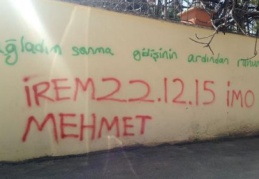 ağladım sanma gidişinin ardından
İREM 22.12.15 İMO
MEHMET